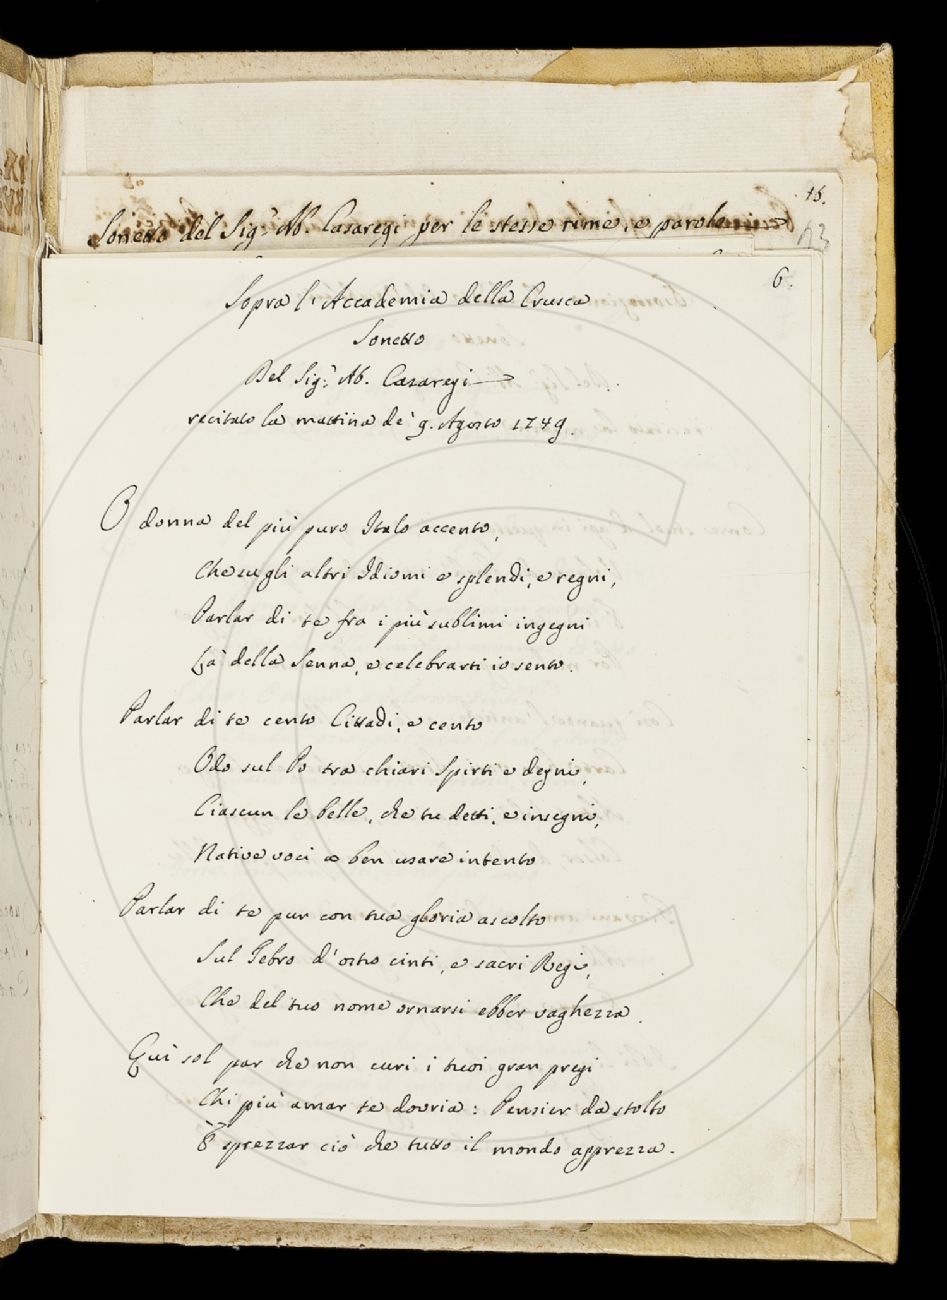 15.
Sonetto del Sig.r Ab. Casaregi per le stesse rime, e parole
23
6.
Sopra l'Accademia della Crusca
Sonetto
Del Sig.r Ab. Casaregi
recitato la mattina de' 9. Agosto 1749.
O donna del più puro Italo accento,
Che su gli altri Idiomi e splendi, e regni,
Parlar di te fra i più sublimi ingegni
Là della Senna, e celebrarti io sento.
Parlar di te cento Cittadi, e cento
Odo sul Po tra chiari Spirti e degni,
Ciascun le belle, che tu detti, e insegni,
Native voci a ben usare intento
Parlar di te pur con tua gloria ascolto
Sul Tebro d'ostro cinti, e sacri Regi,
Che del tuo nome ornarsi ebber vaghezza.
Quì sol par che non curi i tuoi gran pregi
Chi più amar te dovria: Pensier da stolto
È sprezzar ciò che tutto il mondo apprezza.